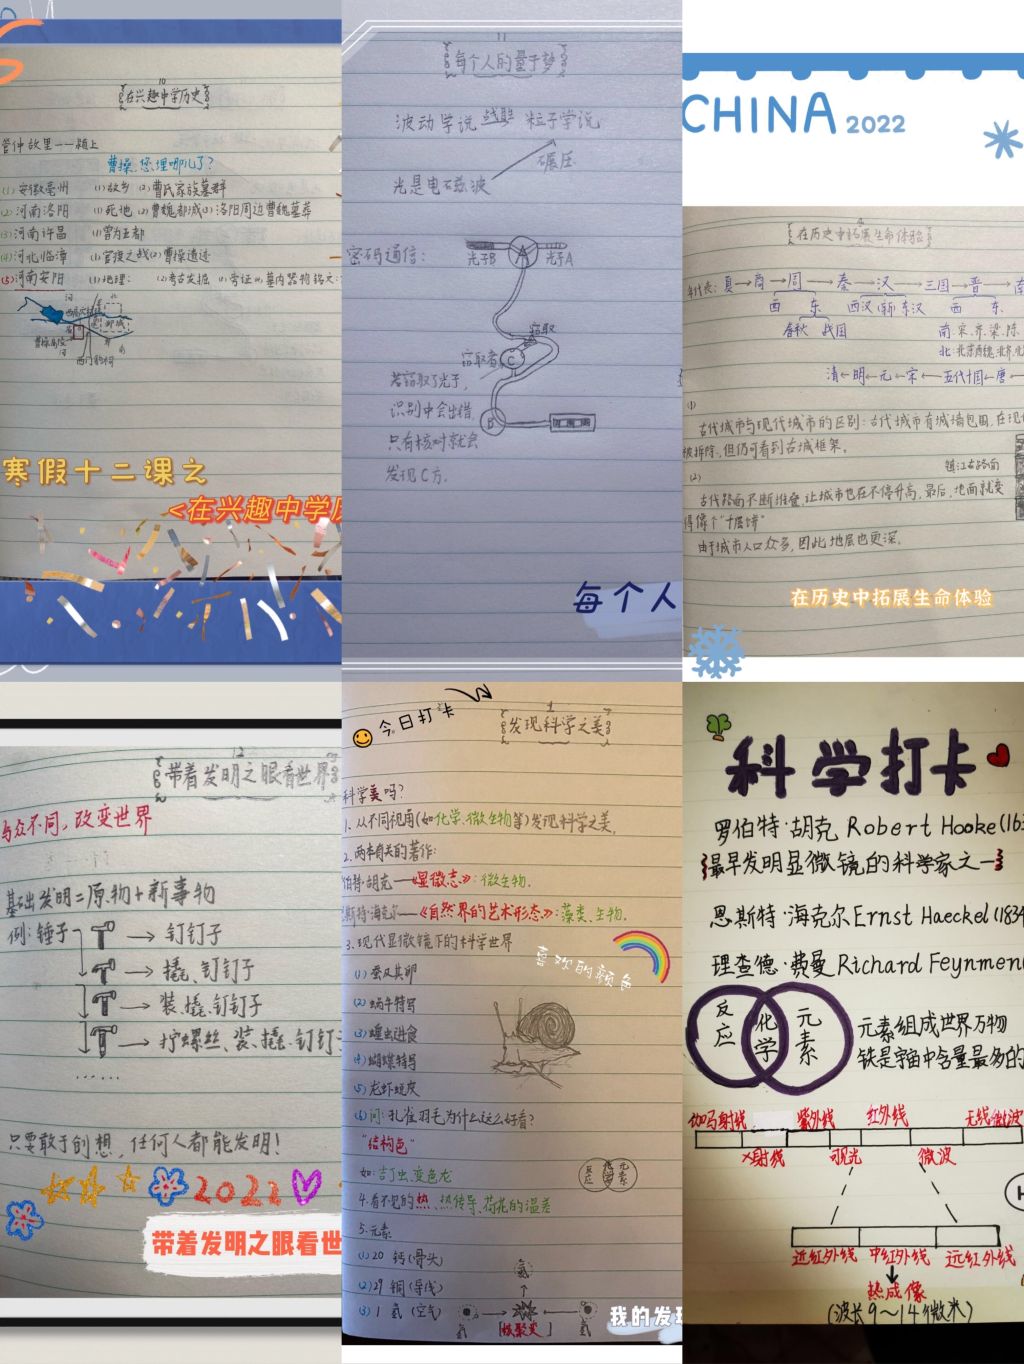 10
在兴趣中学历史
管仲故里——颍上
曹操,您埋哪儿了?
(1)安徽亳州 (1)故乡 (2)曹氏家族墓群
(2)河南洛阳 (1)死地 (2)曹魏都城(3)洛阳周边曹魏墓葬
(3)河南许昌 (1)曾为王都
(4)河北临漳 (1)官渡之战(2)曹操遗迹
(5)河南安阳 (1)地理: (2)考古发掘
邺城
寒假十二课之
<在兴趣中学历
11
每个人的量子梦
波动学说 战胜 粒子学说
碾压
光是电磁波
密码通信:
光子B A 光子A
窃取
窃取者 C
若窃取了光子,
识别中会出错,
只有核对就会
发现C方.
B
每个人
CHINA 2022
在历史中拓展生命体验
年代表:夏→商→周→秦→汉→三国→晋→南
西 东 西汉(新)东汉 西 东
春秋 战国 南:宋.齐.梁.陈.
清←明←元←宋←五代十国←唐←
(1)
古代城市与现代城市的区别:古代城市有城墙包围,在现
被拆除,但仍可看到古城框架。
镇江古路面
(2)
古代路面不断堆叠,让城市也在不停升高,最后,地面就变
得像个"千层饼"
由于城市人口众多,因此地层也更深。
在历史中拓展生命体验
12
带着发明之眼看世界
与众不同,改变世界
基础发明=原物+新事物
例:锤子 → 钉钉子
→ 撬、钉钉子
→ 装、撬、钉钉子
→ 拧螺丝、装、撬、钉钉子
……
只要敢于创想,任何人都能发明!
2022
带着发明之眼看世
今日打卡
1
发现科学之美
科学美吗?
1、从不同视角(如化学、微生物等)发现科学之美.
2.两本有关的著作:
伯特·胡克——《显微志》:微生物.
恩斯特·海克尔——《自然界的艺术形态》:藻类、生物.
3.现代显微镜下的科学世界
喜欢的颜色
(1)蚕及其卵
(2)蜗牛特写
(3)蝗虫进食
(4)蝴蝶特写
(5)龙虾蜕皮
(6)问:孔雀羽毛为什么这么好看?
"结构色"
如:吉丁虫、变色龙
反应 化学 元素
4.看不见的热、热传导、荷花的温差
5.元素
(1)20 钙(骨头)
(2)29 铜(导线)
(3)1 氢(空气)
氦
氢 [核聚变] 氢
我的发现
科学打卡
罗伯特·胡克 Robert Hooke(163
最早发明显微镜的科学家之一
恩斯特·海克尔 Ernst Haeckel(1834
理查德·费曼 Richard Feynmen(
反应 化学 元素
元素组成世界万物
铁是宇宙中含量最多的
伽马射线 紫外线 红外线 无线微波
X射线 可见光 微波
近红外线 中红外线 远红外线
热成像
(波长9~14微米)